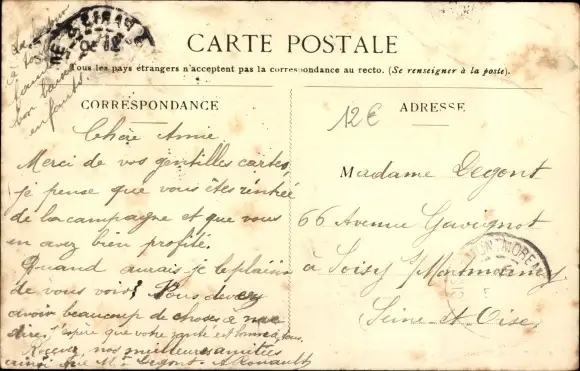 CARTE POSTALE
Tous les pays étrangers n'acceptent pas la correspondance au recto. (Se renseigner à la poste).
CORRESPONDANCE
ADRESSE
12€
Chère Amie
Merci de vos gentilles cartes,
je pense que vous êtes rentrée
de la campagne et que vous
en avez bien profité.
Quand aurais je le plaisir
de vous voir? Vous devez
avoir beaucoup de choses à me
dire. J'espère que votre santé est bonne à tous.
Recevez nos meilleures amitiés
ainsi que Mr Degont.
Madame Degont
66 Avenue Gavignot
à Soisy s/Montmorency
Seine et Oise
PARIS
MONTMOREN
bon
enfants